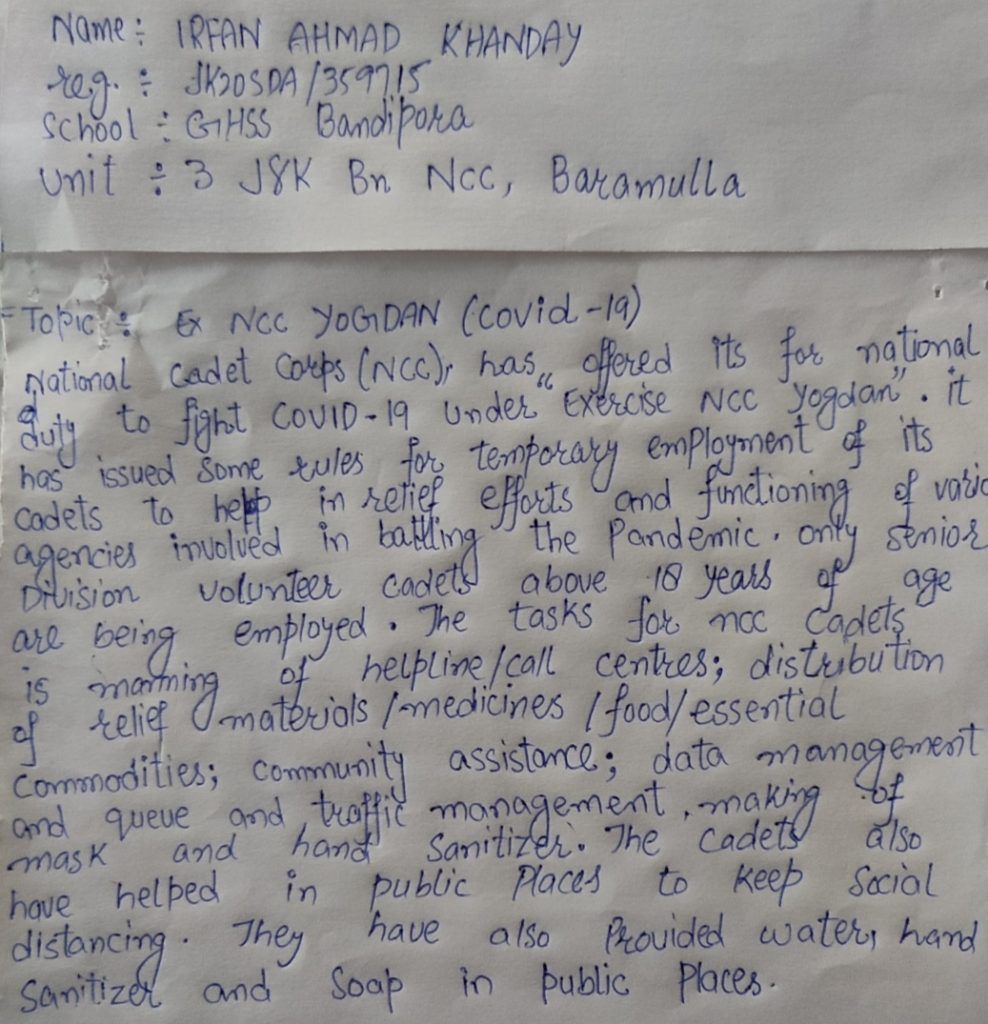 Name : IRFAN AHMAD KHANDAY
reg. : JK20SDA/359715
School : GHSS Bandipora
Unit : 3 J&K Bn NCC, Baramulla
Topic : Ex NCC YOGDAN (Covid-19)
National Cadet Corps (NCC), has offered its for national
duty to fight COVID-19 under "Exercise NCC Yogdan". it
has issued some rules for temporary employment of its
cadets to help in relief efforts and functioning of vario
agencies involved in battling the Pandemic. only senior
Division volunteer cadets above 18 years of age
are being employed. The tasks for ncc Cadets
is manning of helpline/call centres; distribution
of relief materials/medicines/food/essential
Commodities; Community assistance; data management
and queue and traffic management, making of
mask and hand Sanitizer. The Cadets also
have helped in public Places to keep Social
distancing. They have also Provided water, hand
Sanitizer and Soap in public Places.